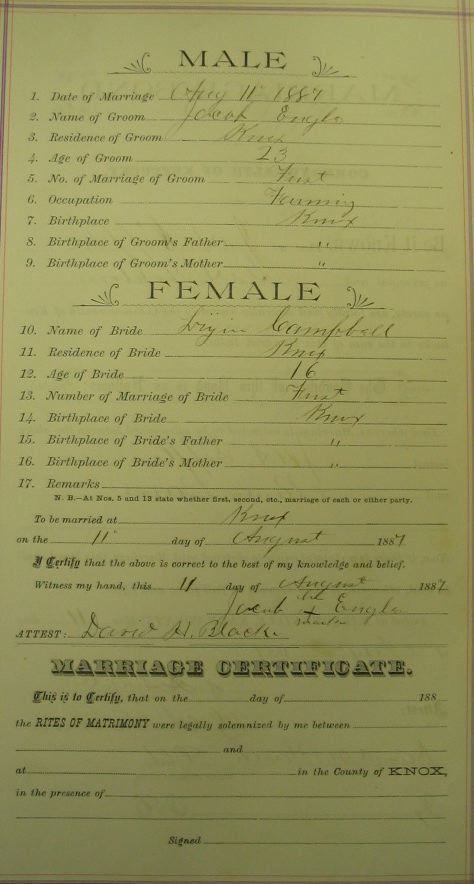 MALE
1. Date of Marriage Aug 11 1887
2. Name of Groom Jacob Engle
3. Residence of Groom Knox
4. Age of Groom 23
5. No. of Marriage of Groom First
6. Occupation Farming
7. Birthplace Knox
8. Birthplace of Groom's Father "
9. Birthplace of Groom's Mother "
FEMALE
10. Name of Bride Campbell
11. Residence of Bride Knox
12. Age of Bride 16
13. Number of Marriage of Bride First
14. Birthplace of Bride Knox
15. Birthplace of Bride's Father "
16. Birthplace of Bride's Mother "
17. Remarks
N. B.—At Nos. 5 and 13 state whether first, second, etc., marriage of each or either party.
To be married at Knox
on the 11 day of August 1887
I Certify that the above is correct to the best of my knowledge and belief.
Witness my hand, this 11 day of August 1887
his
Jacob + Engle
mark
ATTEST: David H. Black
MARRIAGE CERTIFICATE.
This is to Certify, that on the day of 188
the RITES OF MATRIMONY were legally solemnized by me between
and
at in the County of KNOX,
in the presence of
Signed